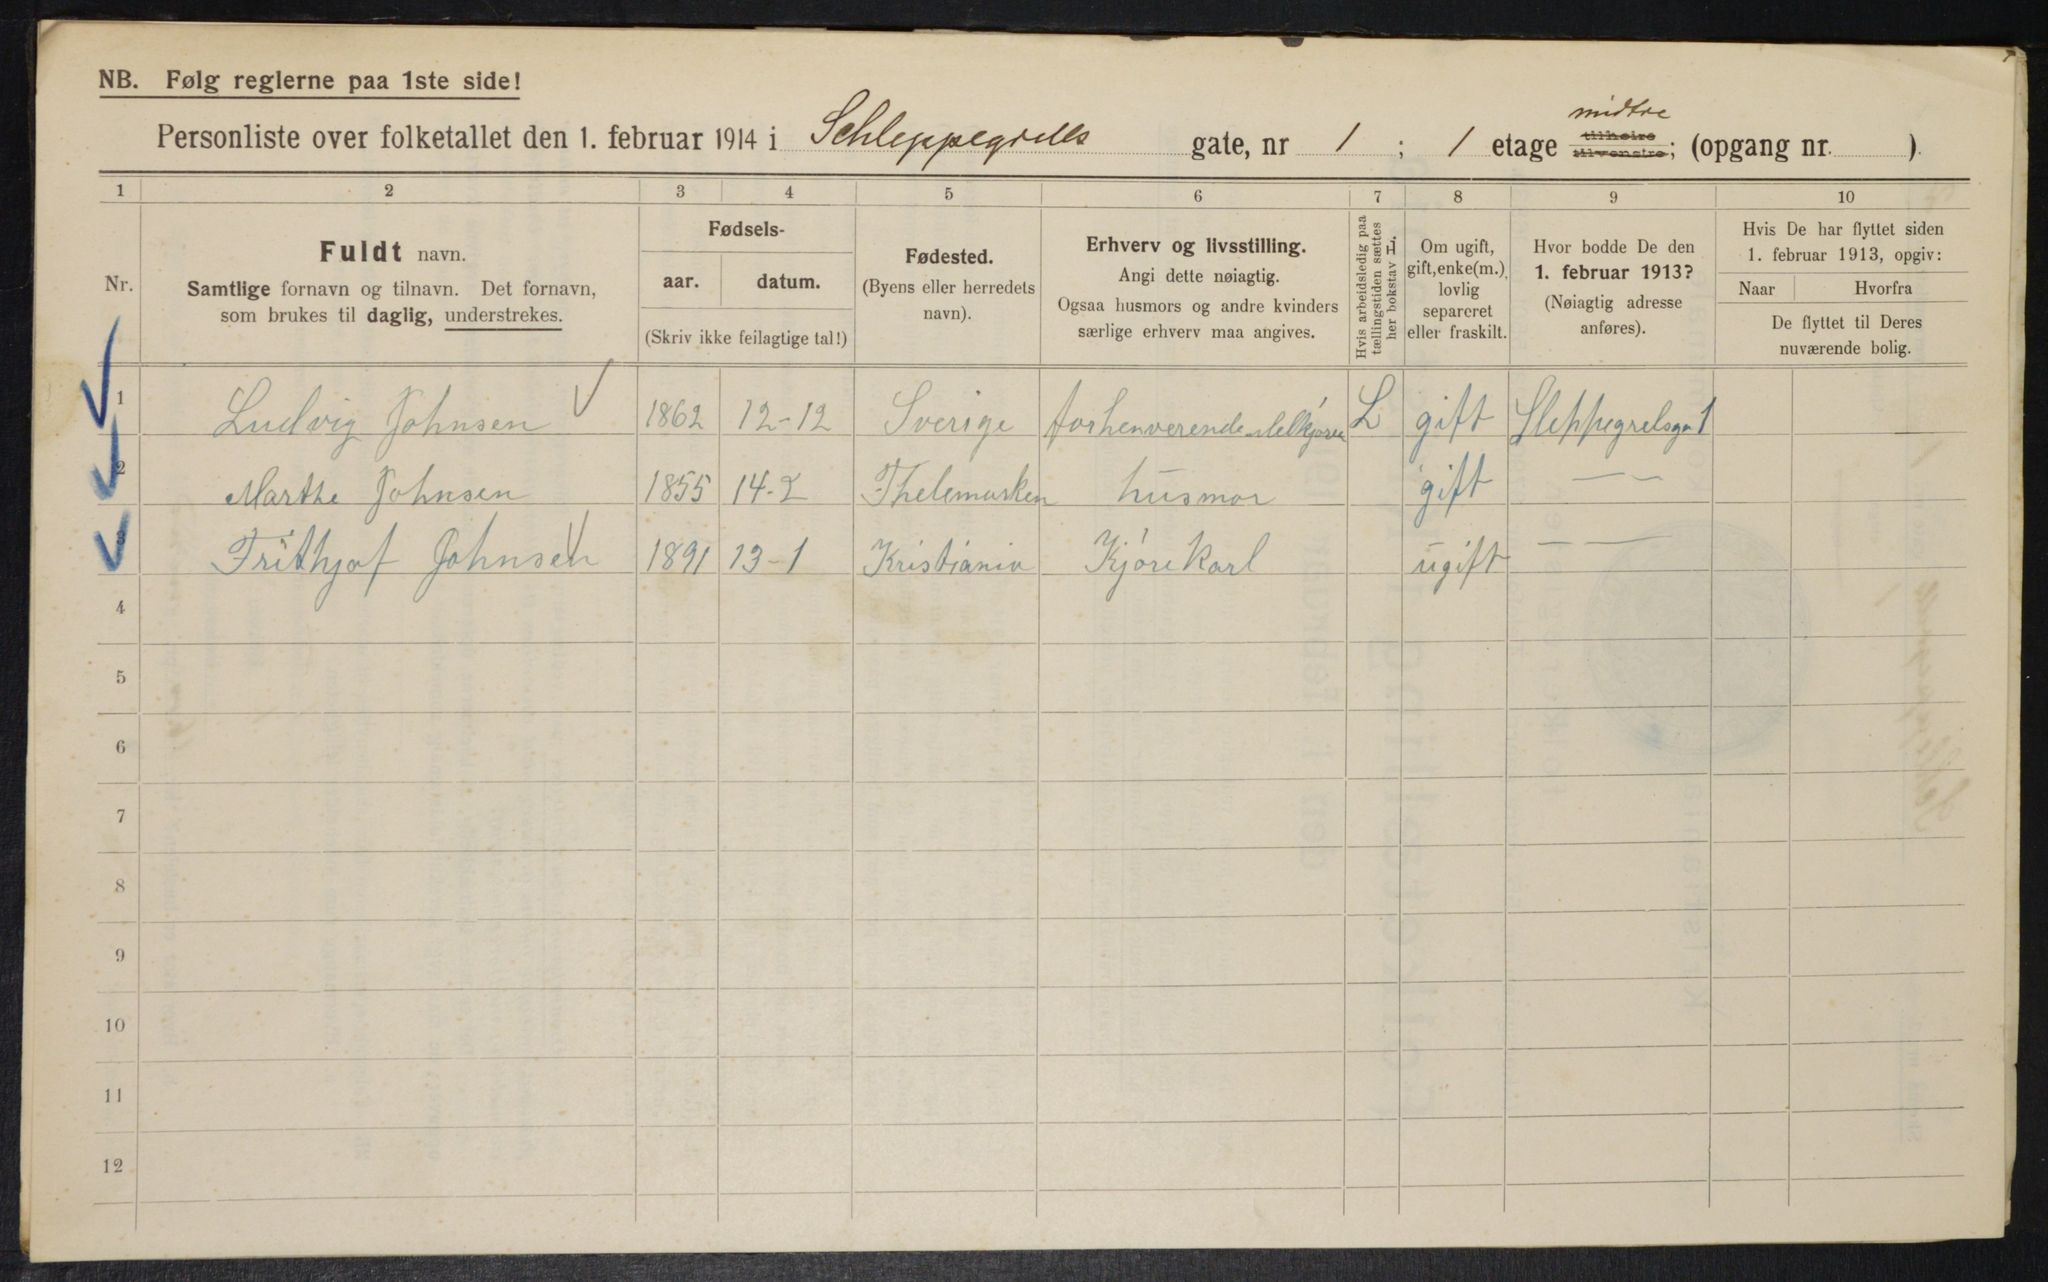 NB. Følg reglerne paa 1ste side!
midtre
Personliste over folketallet den 1. februar 1914 i Schleppegrells gate, nr 1 ; 1 etage tilhøire tilvenstre; (opgang nr. )
1 2 3 4 5 6 7 8 9 10
Nr.
Fuldt navn.
Samtlige fornavn og tilnavn. Det fornavn,
som brukes til daglig, understrekes.
Fødsels-
aar. datum.
(Skriv ikke feilagtige tal!)
Fødested.
(Byens eller herredets
navn).
Erhverv og livsstilling.
Angi dette nøiagtig.
Ogsaa husmors og andre kvinders
særlige erhverv maa angives.
Hvis arbeidsledig paa
tællingstiden sættes
her bokstav L.
Om ugift,
gift, enke(m.),
lovlig
separeret
eller fraskilt.
Hvor bodde De den
1. februar 1913?
(Nøiagtig adresse
anføres).
Hvis De har flyttet siden
1. februar 1913, opgiv:
Naar Hvorfra
De flyttet til Deres
nuværende bolig.
1 Ludvig Johnsen 1862 12-12 Sverige forhenverende Melkjører L gift Sleppegrelsga 1
2 Marthe Johnsen 1855 14-2 Thelemarken husmor gift — —
3 Frithjof Johnsen 1891 13-1 Kristiania Kjørekarl ugift — —
4
5
6
7
8
9
10
11
12